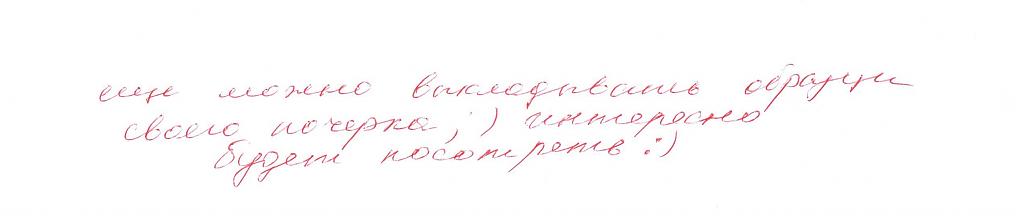 еще можно выкладывать образцы
своего почерка ;) интересно
будет посотреть :)